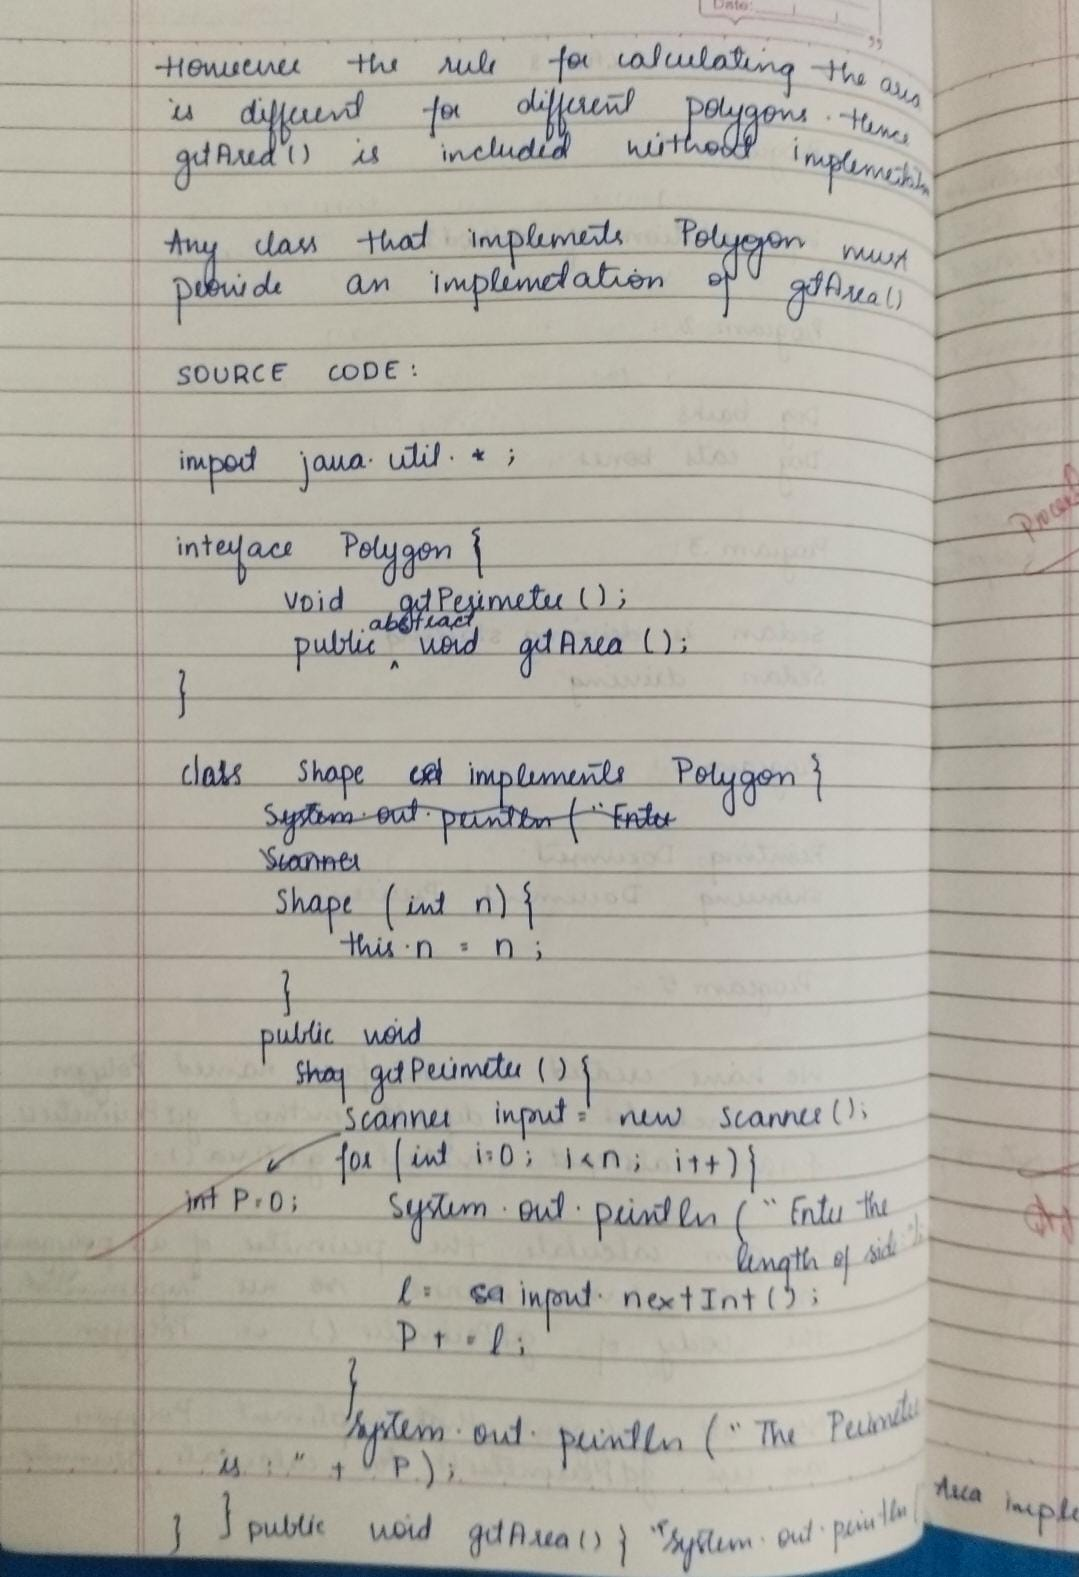 Date:
However the rule for calculating the area
is different for different polygons. Hence
getArea() is included without
Any class that implements Polygon must
provide an implemetation of getArea()
SOURCE CODE:
import java.util.*;
inteface Polygon {
void getPerimeter ();
abstract
public ^ void getArea ();
}
class Shape implements Polygon }
System.out.println ("Enter
Scanner
Shape (int n) {
this.n = n ;
}
public void
getPerimeter () {
Scanner input = new Scanner();
for (int i=0; i<n; i++) {
int P=0; System.out.println ("Enter the
length of side
l = input.nextInt();
P += l;
}
System.out.println ("The Perimeter
is :" + P);
} } public void getArea() } "System.out.println( Area